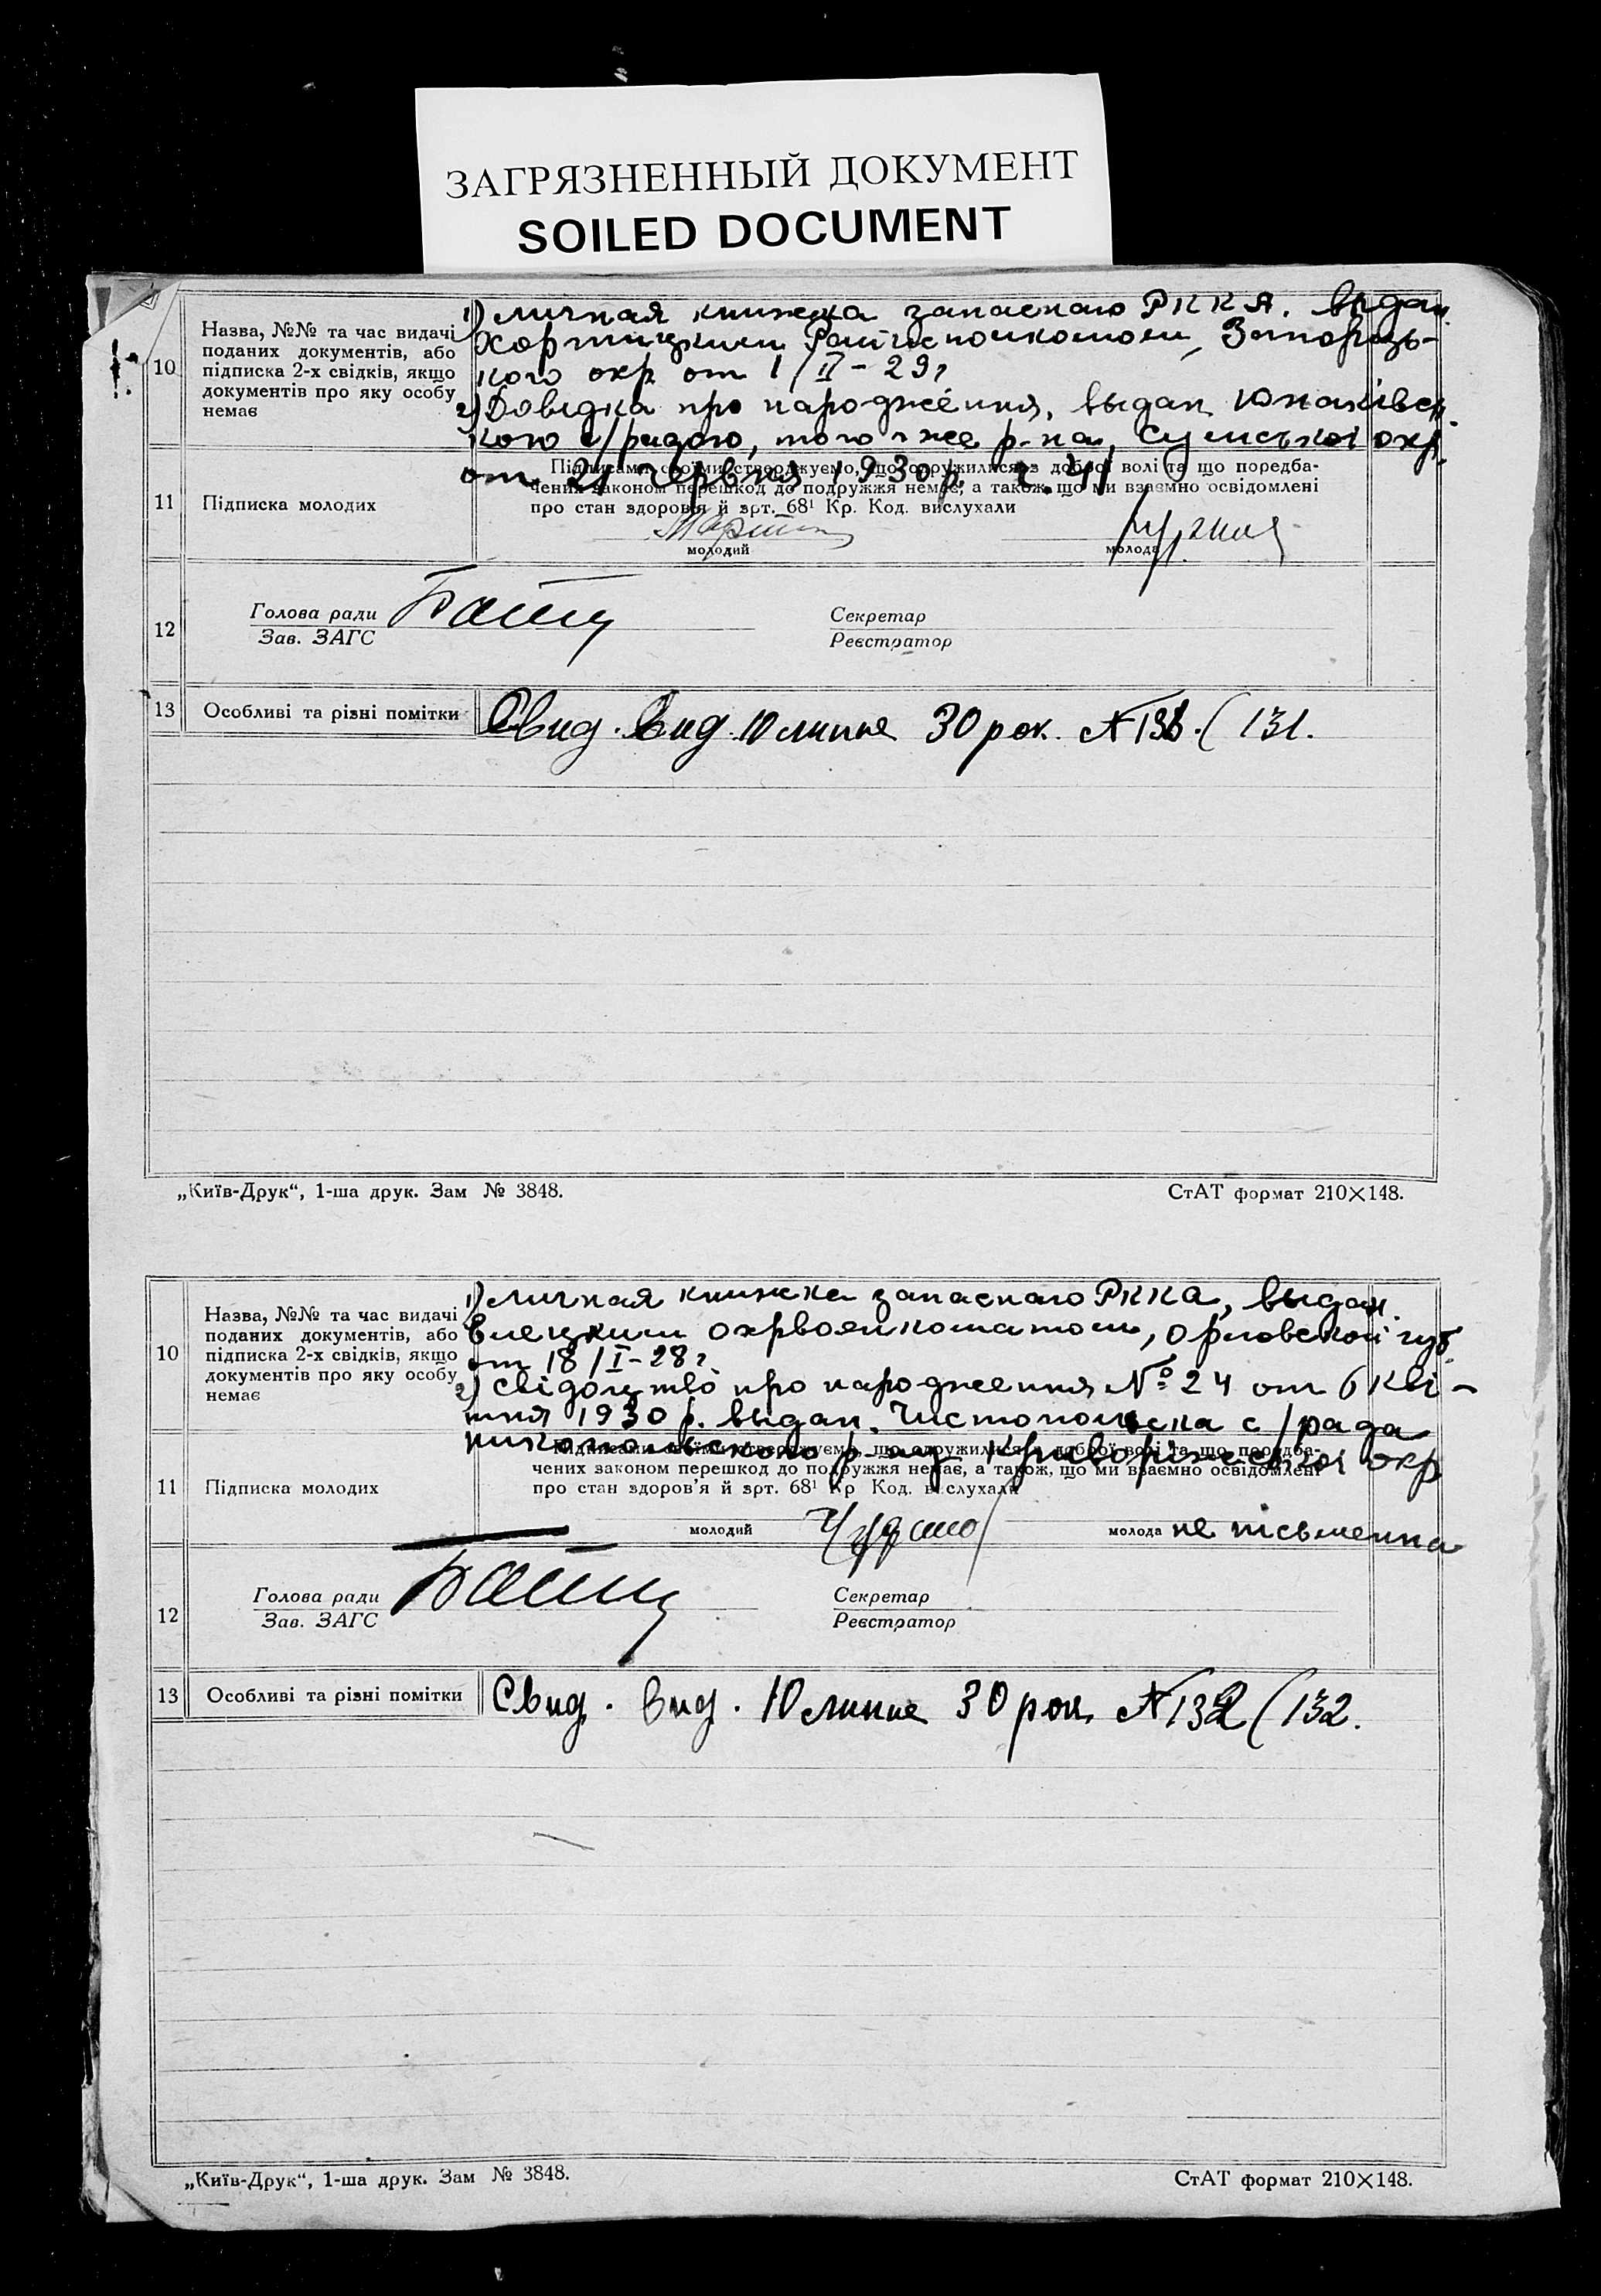 ЗАГРЯЗНЕННЫЙ ДОКУМЕНТ
SOILED DOCUMENT
10
Назва, №№ та час видачі
поданих документів, або
підписка 2-х свідків, якщо
документів про яку особу
немає
1) личная книжка запаснаго РККА, выдан.
Хортицким Райисполкомом, Запорізь-
кого окр от 1/II-29г
2) Довідка про народження, выдан Юнаківсь
кого с/радою, того же р-на, Сумської окр.
от 21 червня 1930 р. г. 41
11
Підписка молодих
Підписами своїми стверджуємо, що одружилися з доброї волі та що поредба-
чених законом перешкод до подружжя немає, а також, що ми взаємно освідомлені
про стан здоров'я й зрт. 68¹ Кр. Код. вислухали
молодий
молода
12
Голова ради
Зав. ЗАГС
Секретар
Реєстратор
13
Особливі та різні помітки
Свид. вид. 10 липня 30 рок. № 131. (131.
„Київ-Друк“, 1-ша друк. Зам № 3848.
СтАТ формат 210×148.
10
Назва, №№ та час видачі
поданих документів, або
підписка 2-х свідків, якщо
документів про яку особу
немає
1) личная книжка запаснаго РККА, выдан.
Елецким окрвоенкоматом, Орловской губ
от 18/I-28г
2) Свідоцтво про народження № 24 от 6 кві-
тня 1930 р. выдан. Чистопольска с/рада
Никопольского р-ну Криворіжської окр
11
Підписка молодих
Підписами своїми стверджуємо, що одружилися з доброї волі та що поредба-
чених законом перешкод до подружжя немає, а також, що ми взаємно освідомлені
про стан здоров'я й зрт. 68¹ Кр Код. вислухали
молодий
молода не письменна
12
Голова ради
Зав. ЗАГС
Секретар
Реєстратор
13
Особливі та різні помітки
Свид. вид. 10 липня 30 рок. № 132 (132.
„Київ-Друк“, 1-ша друк. Зам № 3848.
СтАТ формат 210×148.